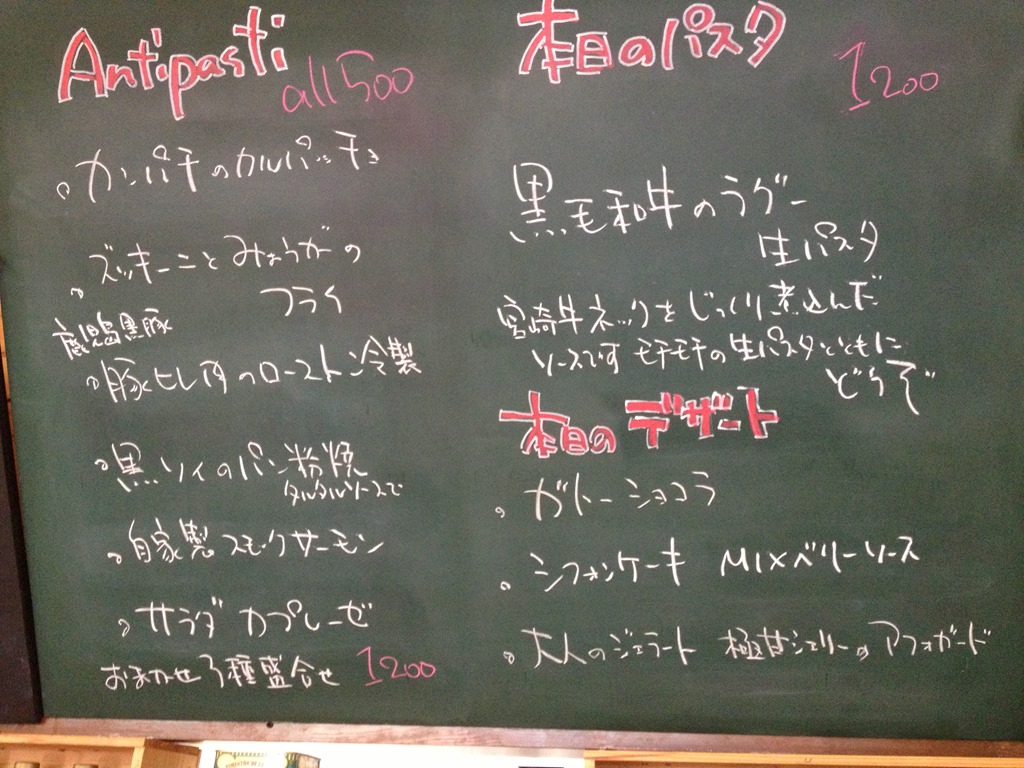 Antipasti
all 500
・カンパチのカルパッチョ
・ズッキーニとみょうがの
フライ
鹿児島黒豚
・豚ヒレ肉のロースト冷製
・黒ソイのパン粉焼
タルタルソースで
・自家製スモークサーモン
・サラダ カプレーゼ
おまかせ3種盛合せ 1200
本日のパスタ
1200
黒毛和牛のラグー
生パスタ
宮崎牛ネックをじっくり煮込んだ
ソースです モチモチの生パスタとともに
どうぞ
本日のデザート
・ガトーショコラ
・シフォンケーキ MIXベリーソース
・大人のジェラート 極甘シェリーのアフォガード